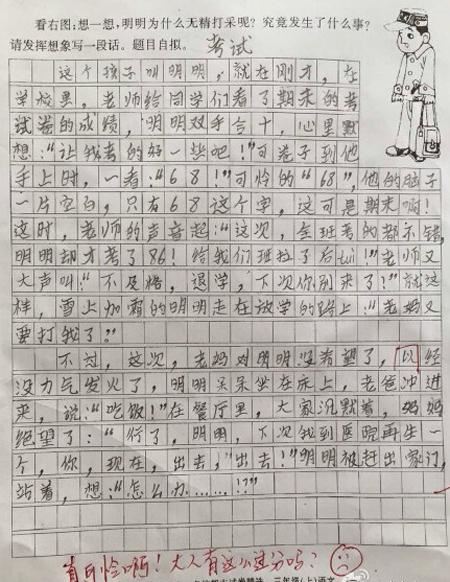 看右图:想一想,明明为什么无精打采呢?究竟发生了什么事?
请发挥想象写一段话。题目自拟。 考试
这个孩子叫明明,就在刚才,在
学校里,老师给同学们看了期末的考
试卷的成绩,明明双手合十,心里默
想:“让我考的好一些吧!”可卷子到他
手上时,一看:“68!”可怜的“68”,他的脑子
一片空白,只有68这个字,这可是期末啊!
这时,老师的声音起:“这次,全班考的都不错,
明明却才考了86!给我们班拉了后tuǐ!”老师又
大声叫:“不及格,退学,下次你别来了!”就这
样,雪上加霜的明明走在放学的路上:“老妈又
要打我了。”
不过,这次,老妈对明明没希望了,以经
没力气发火了,明明呆呆坐在床上,老爸冲进
来,说:“吃饭!”在餐厅里,大家沉默着,妈妈
绝望了:“行了,明明,下次我到医院再生一
个,你,现在,出去,”出去!”明明被赶出家门,
站着,想:“怎么办……!?”
真可怜啊!大人有这么过分吗?
三年级(上)语文